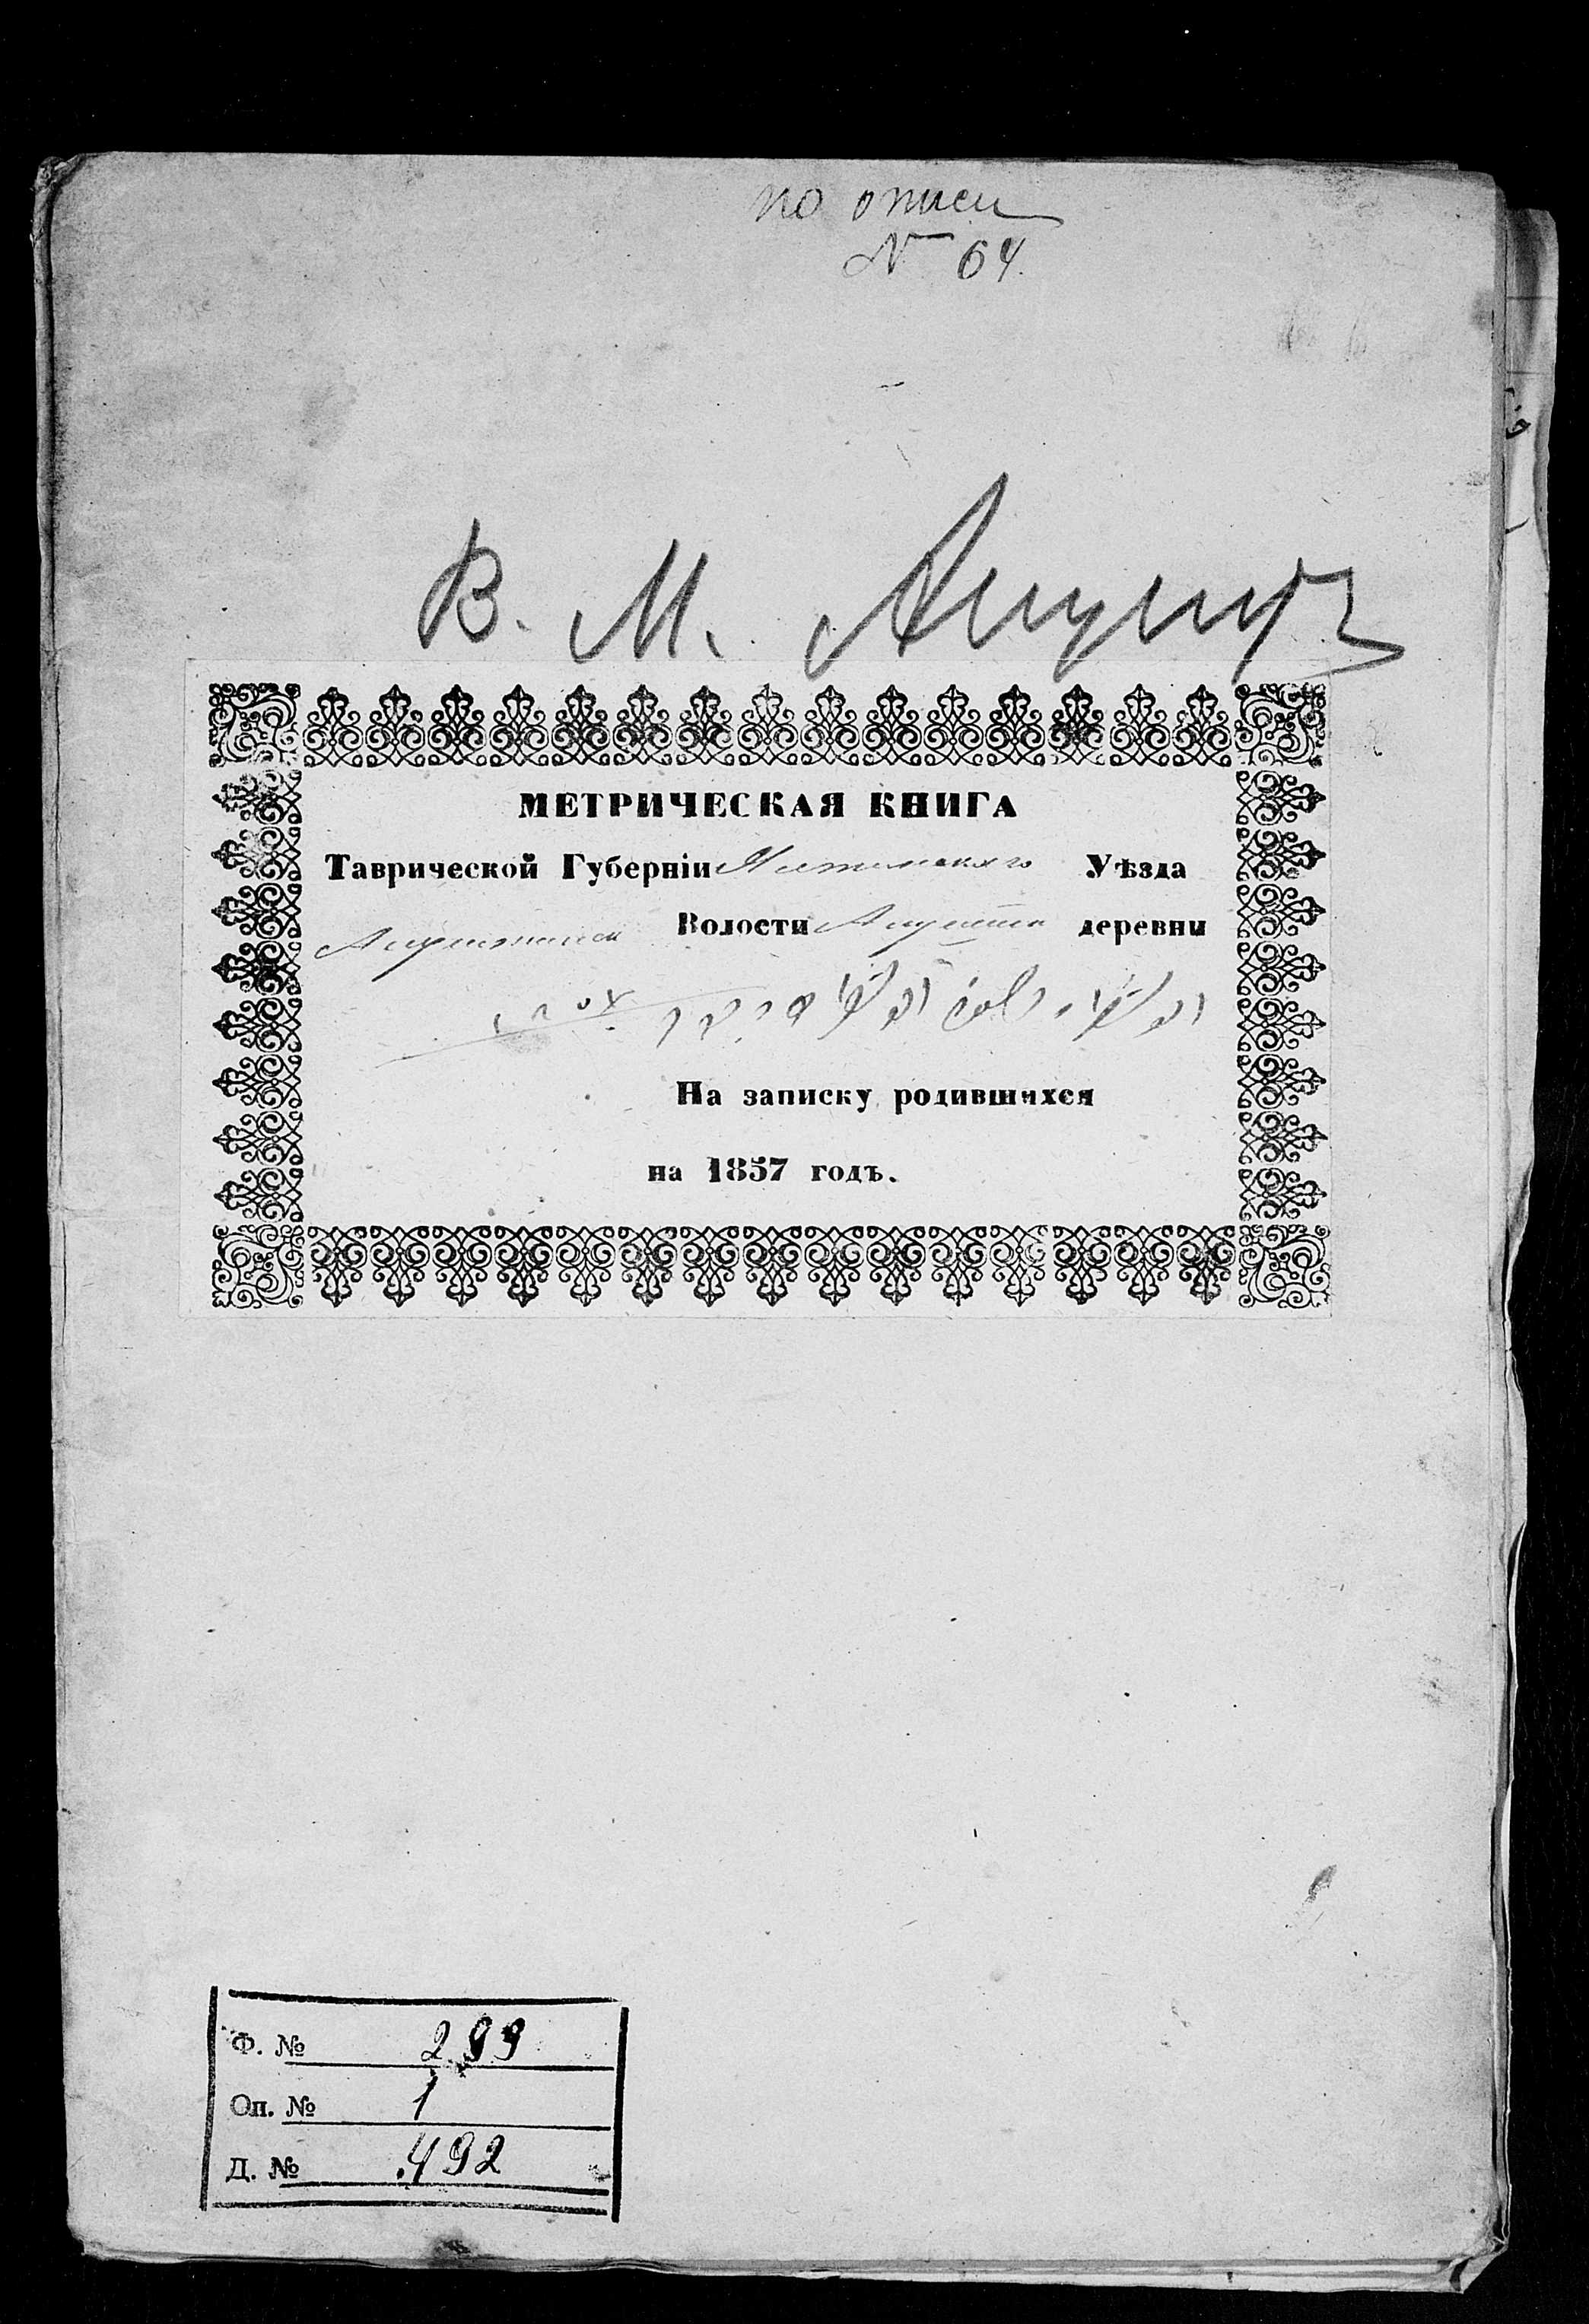 по описи
№ 64.
В. М. Алушта
МЕТРИЧЕСКАЯ КНИГА
Таврической Губерніи Ялтинскаго Уѣзда
Алуштинской Волости Алушта деревни
На записку родившихся
на 1857 годъ.
Ф. № 299
Оп. № 1
Д. № 492